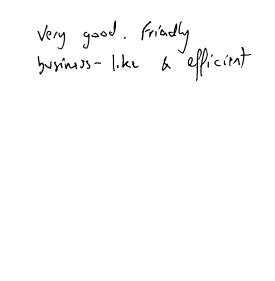 Very good. Friendly
business-like & efficient